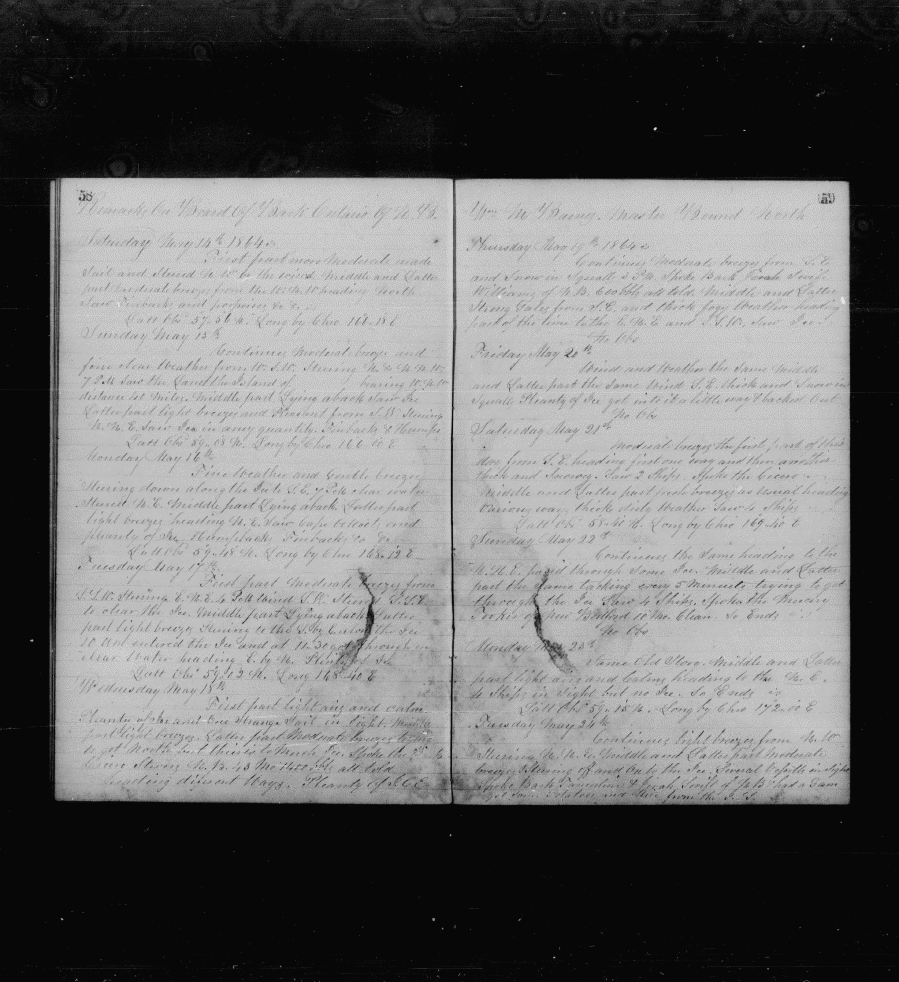 58
Remarks On Board Of Bark Ontario Of N. B.
Saturday May 14th 1864
First part more Moderate made
Sail and Steered N. W. by the wind Middle and Latter
part Moderate breezes from the W. N. W heading North
Saw Finbacks and porpoises &c &c
Latt Obs 57-56 N. Long by Chro 168-18 E
Sunday May 15th
Continues Moderate breeze and
fine clear Weather from W. S. W. Steering N. & N. N. W.
7 P.M Saw the Land the Island of bearing W. N. W
distance 40 Miles Middle part Lying aback Saw Ice
Latter part light breezes and Pleasant from S. W Steering
N. N. E. Saw Ice in any quantity. Finbacks & Humps
Latt Obs 59-08 N. Long by Chro 166-00 E
Monday May 16th
Fine Weather and Gentle breezes
Steering down along the Ice to S. E. 7 P.M clear water
Steered N. E. Middle part Lying aback Latter part
light breezes heading N. E. Saw Cape and
pleanty of Ice Humpbacks Finbacks &c &c
Latt Obs 59-48 N. Long by Chro 168-12 E
Tuesday May 17th
First part Moderate breezes from
S. S. W. Steering E. N. E. 4 P.M S. W. Steered S. S. E
to clear the Ice. Middle part Lying aback Latter
part light breezes Steering to the S. by E. the Ice
10 AM entered the Ice and at 11.30 got through in
clear Water heading E. by N. Plenty of Ice
Latt Obs 59-02 N. Long 168-40 E
Wednesday May 18th
First part light airs and calm
Pleanty of Ice and One Strange Sail in Sight. Middle
part light breezes. Latter part Moderate breezes trying
to get North but there is to Much Ice. Spoke the
Cicero Stivers N. B. 43 Mo 1400 bbls all told
heading different Ways. Pleanty of I.C.E.
59
Wm M Barnes. Master Bound North
Thursday May 19th 1864
Continues Moderate breezes from S. E.
and Snow in Squalls 2 P.M. Spoke Bark Jireh Swift
Williams of N. B. 600 bbls all told. Middle and Latter
Strong Gales from S. E. and thick foggy Weather heading
part of the time to the E. N. E and S. S. W. Saw Ice
No Obs
Friday May 20th
Wind and Weather the Same Middle
and Latter part the Same Wind S. E. thick and Snow in
Squalls Pleanty of Ice got into it a little way & backed Out
No Obs
Saturday May 21st
Moderat breezes the first part of this
day from S. E. heading first one way and then another
thick and Snowing. Saw 2 Ships. Spoke the Cicero
Middle and Latter part fresh breezes as Usual heading
Various ways. thick dirty Weather Saw 4 Ships
Latt Obs 58-41 N. Long by Chro 169-40 E
Sunday May 22nd
Continues the Same heading to the
N. N. E. passed through Some Ice. Middle and Latter
part the Same tacking every 5 Minuets trying to get
through the Ice Saw 4 Ships. Spoke the Mercury
Tooker of New Bedford 10 Mo Clean. So Ends
No Obs
Monday May 23rd
Same Old Story. Middle and Latter
part light airs and Calms heading to the N. E.
4 Ships in Sight but no Ice. So Ends
Latt Obs 59-15 N. Long by Chro 172-00 E
Tuesday May 24th
Continues light breezes from N. W
Steering N. N. E. Middle and Latter part Moderate
breezes Steering Off and On by the Ice. Several Vessels in Sight
Spoke Bark & Jireh Swift of N. B. had a Gam
got Some Potatoes and from the J. S.